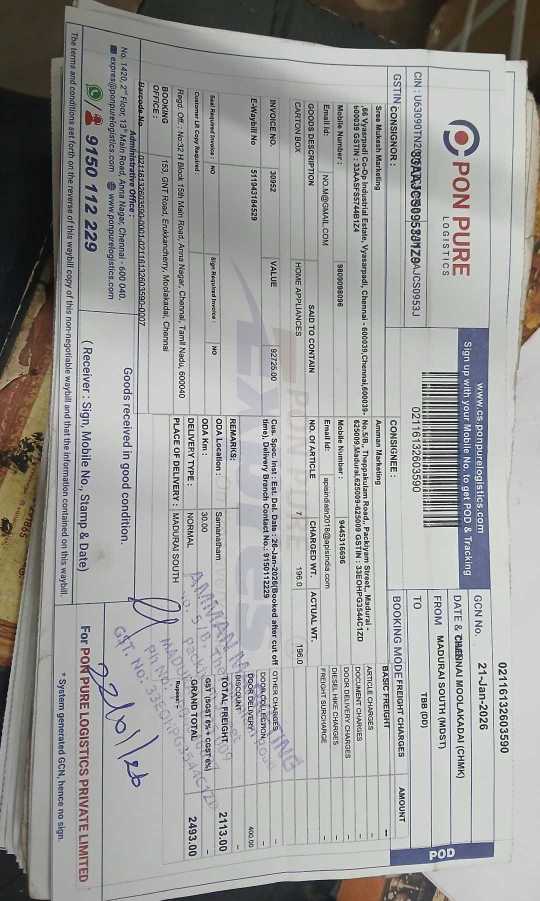 PON PURE
LOGISTICS
www.cs.ponpurelogistics.com
Sign up with your Mobile No. to get POD & Tracking
GCN No.
02116132603590
DATE & TIME
21-Jan-2026
FROM
CHENNAI MOOLAKADAI (CHMK)
TO
MADURAI SOUTH (MDST)
BOOKING MODE
TBB (DD)
POD
02116132603590
GSTIN
CONSIGNOR :
Sree Mukesh Marketing
,66 Vyasrpadi Co-Op Industrial Estate, Vyasarpadi, Chennai - 600039,Chennai,600039-
600039 GSTIN : 33AASFS5744B1Z4
Mobile Number :
9809098096
Email Id:
NO.M@GMAIL.COM
CONSIGNEE :
Amman Marketing
No.5/B, Theppakulam Road,, Packiyam Street,, Madurai -
625009,Madurai,625009-625009 GSTIN : 33EOHPG3544C1ZD
Mobile Number :
9445316696
Email Id:
apisindiasth2018@apisindia.com
GOODS DESCRIPTION
SAID TO CONTAIN
NO. OF ARTICLE
CHARGED WT.
ACTUAL WT.
CARTON BOX
HOME APPLIANCES
7
196.0
196.0
INVOICE NO.
30952
VALUE
92725.00
E-Waybill No
511943184529
Cus. Spec. Inst : Est. Del. Date :26-Jan-2026(Booked after cut off
time), Delivery Branch Contact No.: 9150112229
Seal Required Invoice :
NO
Sign Required Invoice :
NO
Customer Ld Copy Required
REMARKS:
ODA Location :
Samanatham
ODA Km :
30.00
DELIVERY TYPE :
NORMAL
PLACE OF DELIVERY :
MADURAI SOUTH
FREIGHT CHARGES
AMOUNT
BASIC FREIGHT
ARTICLE CHARGES
DOCUMENT CHARGES
DOOR DELIVERY CHARGES
DIESEL HIKE CHARGES
FREIGHT SURCHARGE
OTHER CHARGES
DOOR COLLECTION
DOOR DELIVERY
400.00
DISCOUNT
TOTAL FREIGHT
2113.00
GST (SGST 6% + CGST 6%)
GRAND TOTAL
2493.00
Rupees :
Regd. Off : No:32 H Block 15th Main Road, Anna Nagar, Chennai, Tamil Nadu, 600040
BOOKING
OFFICE :
153, GNT Road, Erukkancherry, Moolakadai, Chennai
Barcode No.
02116132603590-0001-02116132603590-0007
Administrative Office :
No. 1420, 2nd Floor, 13th Main Road, Anna Nagar, Chennai - 600 040.
expres@ponpurelogistics.com www.ponpurelogistics.com
9150 112 229
Goods received in good condition.
( Receiver : Sign, Mobile No., Stamp & Date)
AMMAN MARKETING
22/01/26
For PON PURE LOGISTICS PRIVATE LIMITED
* System generated GCN, hence no sign.
The terms and conditions set forth on the reverse of waybill copy of this non-negotiable waybill and that the information contained on this waybill.